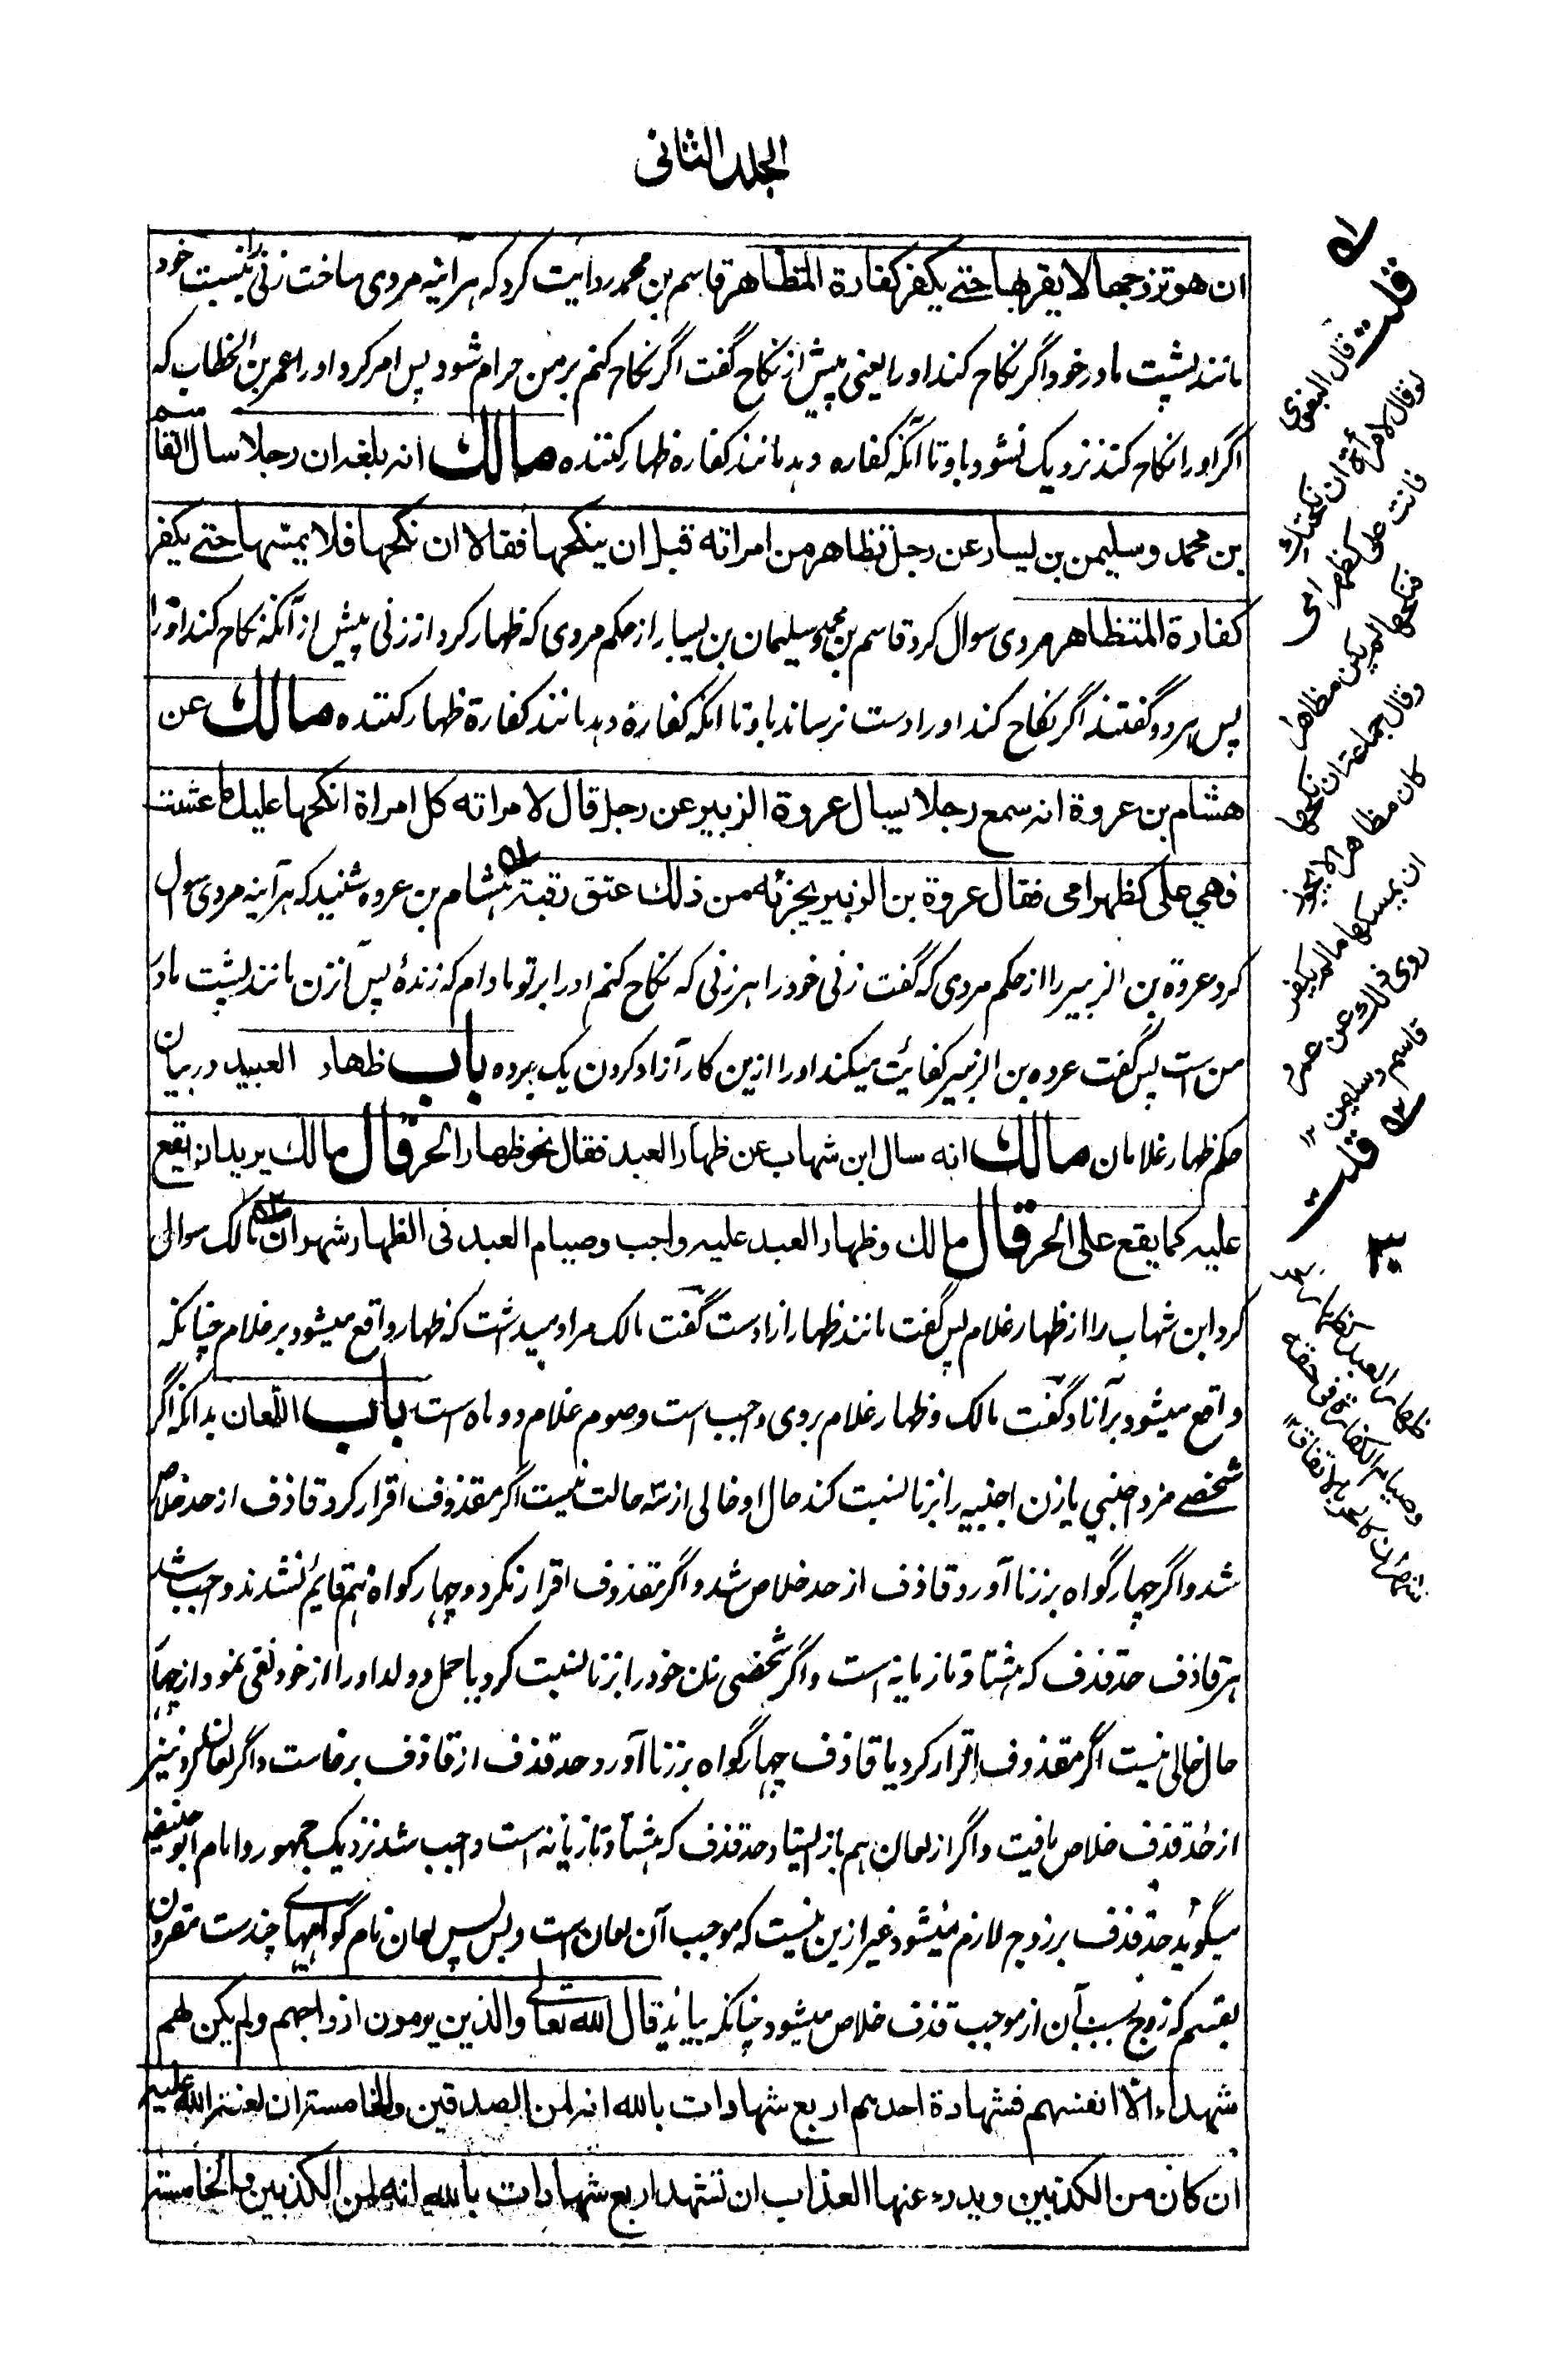 الجلد الثانی
ان هو تزوجها لا یقربها حتے یکفر کفارة المتظاهر قاسم بن محمد روایت کرد که هرآئینه مردی ساخت زنی را بنسبت خود
مانند پشت مادر خود اگر نکاح کند او را یعنی پیش از نکاح گفت اگر نکاح کنم بر من حرام شود پس امر کرد او را عمر بن الخطاب که
اگر او را نکاح کند نزدیک نشود باو تا آنکه کفاره دهد مانند کفاره ظهار کننده مالك انه بلغه ان رجلا سال القاسم
بن محمد وسلیمن بن یسار عن رجل تظاهر من امراته قبل ان ینکحها فقالا ان نکحها فلا یمسها حتے یکفر
کفارة المتظاهر مردی سوال کرد قاسم بن محمد وسلیمان بن یسار را از حکم مردی که ظهار کرد از زنی پیش از آنکه نکاح کند او را
پس هر دو گفتند اگر نکاح کند او را دست نرساند باو تا آنکه کفاره دهد مانند کفارة ظهار کننده مالك عن
هشام بن عروة انه سمع رجلا یسال عروة الزبیر عن رجل قال لامراته کل امراة انکحها علیك ما عشت
فهی علی کظهر امی فقال عروة بن الزبیر یجزئه من ذلك عتق رقبة هشام بن عروه شنید که هرآینه مردی سوال
کرد عروة بن الزبیر را از حکم مردی که گفت زنی خود را هر زنی که نکاح کنم او را بر تو مادام که زندۀ پس آنزن مانند پشت مادر
من است پس گفت عروه بن الزبیر کفایت میکند او را ازین کار آزاد کردن یک برده باب ظهار العبید در بیان
حکم ظهار غلامان مالك انه سال ابن شهاب عن ظهار العبد فقال نحو ظهار الحر قال مالك یرید انه یقع
علیه کما یقع علی الحر قال مالك وظهار العبد علیه واجب وصیام العبد فی الظهار شهران مالک سوال
کرد ابن شهاب را از ظهار غلام پس گفت مانند ظهار آزادست گفت مالک مراد میداشت که ظهار واقع میشود بر غلام چنانکه
واقع میشود بر آزاد گفت مالک وظهار غلام بر وی واجب است وصوم غلام دو ماه است باب اللعان بدانکه اگر
شخصے مرد اجنبی یا زن اجنبیه را بزنا نسبت کند حال او خالی از سه حالت نیست اگر مقذوف اقرار کرد قاذف از حد خلاص
شد واگر چهار گواه بر زنا آورد قاذف از حد خلاص شد واگر مقذوف اقرار نکرد وچهار گواه هم قایم نشدند واجب شد
بر قاذف حد قذف که هشتاد تازیانه است واگر شخصی زن خود را بزنا نسبت کرد یا حمل و ولد او را از خود نفی نمود از چهار
حال خالی نیست اگر مقذوف اقرار کرد یا قاذف چهار گواه بر زنا آورد حد قذف از قاذف برخاست واگر لعان کرد نیز
از حد قذف خلاص یافت واگر از لعان هم باز ایستاد حد قذف که هشتاد تازیانه است واجب شد نزدیک جمهور وامام ابو حنیفه
میگوید حد قذف بر زوج لازم نمیشود غیر ازین نیست که موجب آن لعان است وبس پس لعان نام گواهیهای چندست مقرون
بقسم که زوج بسبب آن از موجب قذف خلاص میشود چنانکه بیاید قال الله تعالی والذین یرمون ازواجهم ولم یکن لهم
شهداء الا انفسهم فشهادة احدهم اربع شهادات بالله انه لمن الصدقین والخامسة ان لعنة الله علیه
ان کان من الکذبین ویدرء عنها العذاب ان تشهد اربع شهادات بالله انه لمن الکذبین والخامسة
قلت قال البغوی
لو قال لامرأة ان نکحتك
فانت علی کظهر امی
فنکحها لم یکن مظاهرا
وقال جماعة ان نکحها
کان مظاهرا لا یجوز
ان یمسکها ما لم یکفر
روی ذلك عن عمر و
قاسم وسلیمن ۱۲
قلت
ظهار العبد کظهار الحر
وصیام الکفارة فی حقه
شهران کالحر بالاتفاق ۱۲